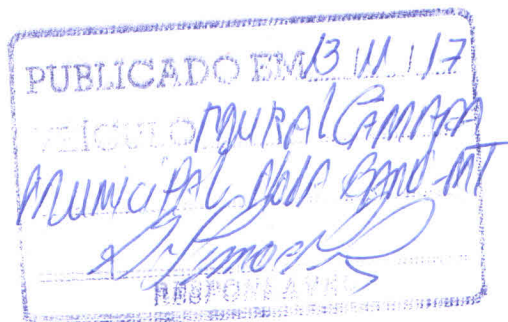 PUBLICADO EM 13 11 17
VEÍCULO MURAL CÂMARA
MUNICIPAL NOVA BAND-MT
RESPONSÁVEL